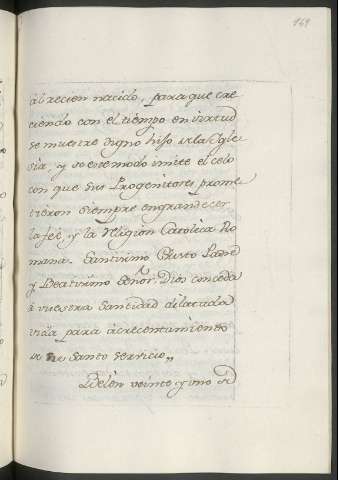 161
al recien nacido, para que cre
ciendo con el tiempo en virtud
se muestre digno hijo de la Igle
sia, y de este modo imite el celo
con que sus Progenitores prome
tieron siempre engrandecer
la feè, y la Religion Catolica Ro
mana. Santisimo Padre
y Beatisimo Señor. Dios conceda
à vuestra Santidad dilatada
vida para acrecentamiento
de su Santo servicio,,
Belèn veinte y uno de